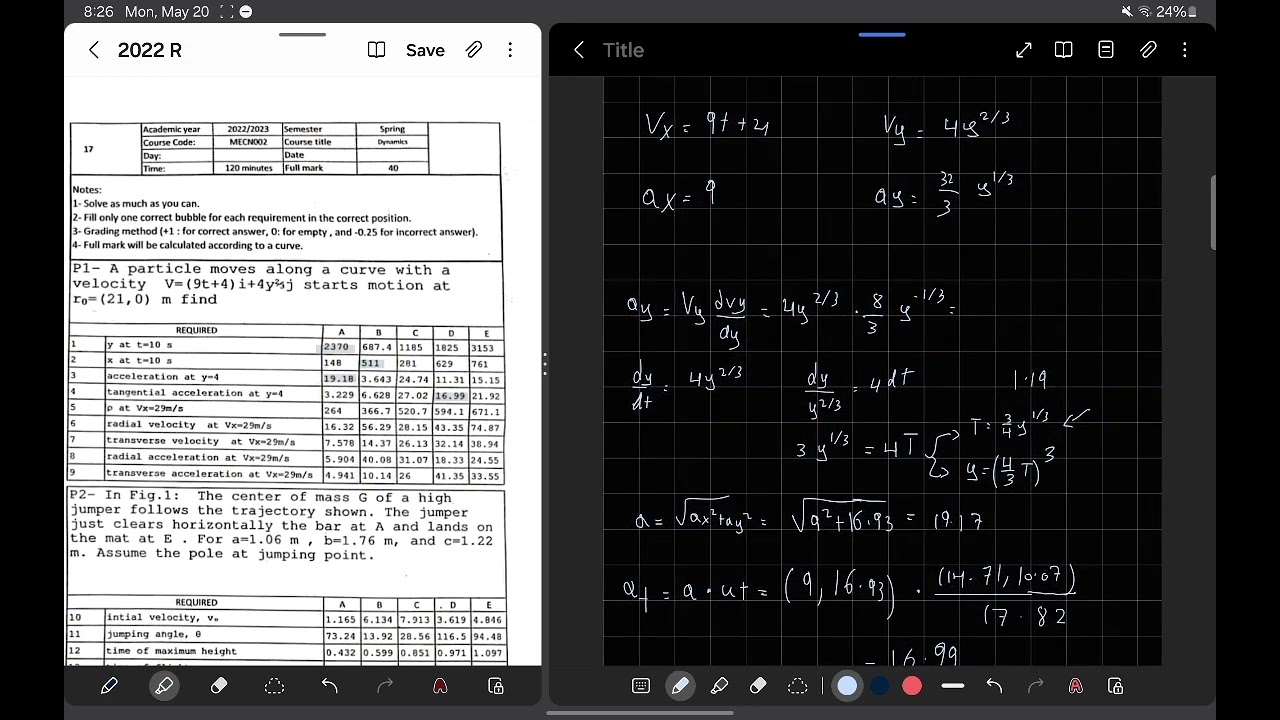 8:26 Mon, May 20 24%
2022 R Save
Title
17
Academic year 2022/2023 Semester Spring
Course Code: MECN002 Course title Dynamics
Day: Date
Time: 120 minutes Full mark 40
Notes:
1- Solve as much as you can.
2- Fill only one correct bubble for each requirement in the correct position.
3- Grading method (+1 : for correct answer, 0: for empty , and -0.25 for incorrect answer).
4- Full mark will be calculated according to a curve.
P1- A particle moves along a curve with a
velocity V=(9t+4)i+4y⅔j starts motion at
r₀=(21,0) m find
REQUIRED A B C D E
1 y at t=10 s 2370 687.4 1185 1825 3153
2 x at t=10 s 148 511 281 629 761
3 acceleration at y=4 19.18 3.643 24.74 11.31 15.15
4 tangential acceleration at y=4 3.229 6.628 27.02 16.99 21.92
5 ρ at Vx=29m/s 264 366.7 520.7 594.1 671.1
6 radial velocity at Vx=29m/s 16.32 56.29 28.15 43.35 74.87
7 transverse velocity at Vx=29m/s 7.578 14.37 26.13 32.14 38.94
8 radial acceleration at Vx=29m/s 5.904 40.08 31.07 18.33 24.55
9 transverse acceleration at Vx=29m/s 4.941 10.14 26 41.35 33.55
P2- In Fig.1: The center of mass G of a high
jumper follows the trajectory shown. The jumper
just clears horizontally the bar at A and lands on
the mat at E . For a=1.06 m , b=1.76 m, and c=1.22
m. Assume the pole at jumping point.
REQUIRED A B C . D E
10 intial velocity, v₀ 1.165 6.134 7.913 3.619 4.846
11 jumping angle, θ 73.24 13.92 28.56 116.5 94.48
12 time of maximum height 0.432 0.599 0.851 0.971 1.097
Vx = 9t+4 Vy = 4y^2/3
ax = 9 ay = 32/3 y^1/3
ay = Vy dvy/dy = 4y^2/3 · 8/3 y^-1/3 =
dy/dt = 4y^2/3 dy/y^2/3 = 4dt 1.19
3 y^1/3 = 4T T = 3/4 y^1/3
y = (4/3 T)^3
a = √ax²+ay² = √9²+16.93 = 19.17
at = a · ut = (9, 16.93) · (14.71, 10.07)/17.82
= 16.99